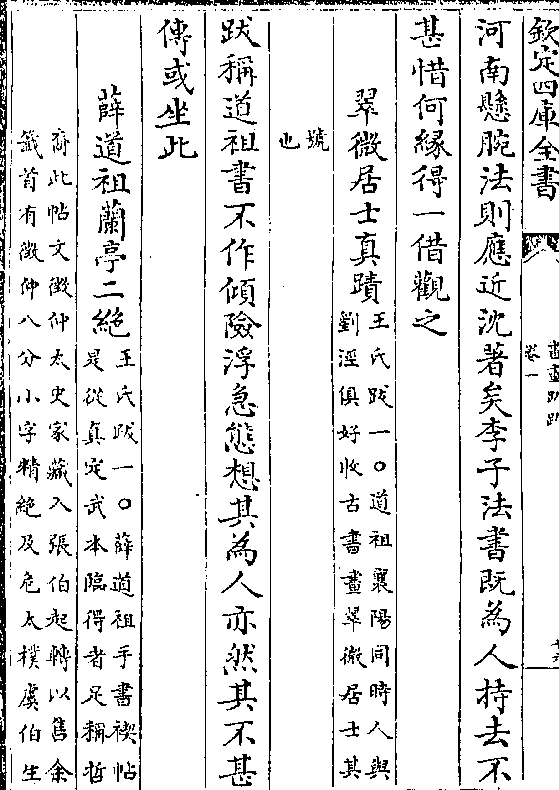 欽定四庫全書
書畫跋跋
卷一
河南懸腕法則應近沈著矣李子法書既為人持去不
甚惜何緣得一借觀之
翠微居士真蹟
王氏跋一○道祖襄陽同時人與
劉涇俱好收古書畫翠微居士其
號
也
跋稱道祖書不作傾險浮急態想其為人亦然其不甚
傳或坐此
薛道祖蘭亭二絶
王氏跋一○薛道祖手書禊帖
是從真定武本臨得者足稱哲
裔此帖文徵仲太史家藏入張伯起轉以售余
籤首有徵仲八分小字精絶及危太樸虞伯生